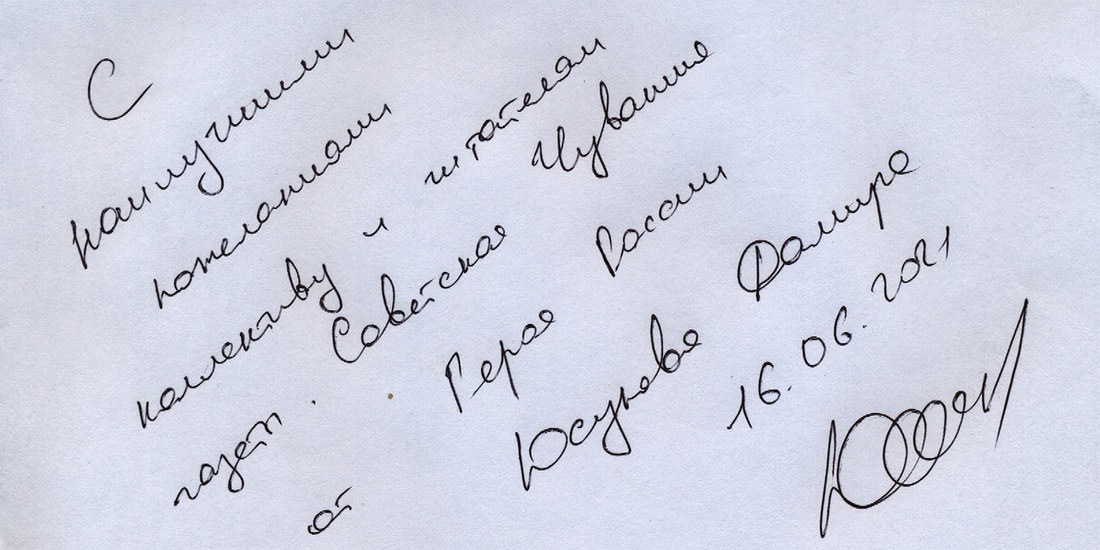 С
наилучшими
пожеланиями
коллективу и читателям
газеты. Советская Чувашия
от Героя России
Юсупова Дамира
16.06.2021